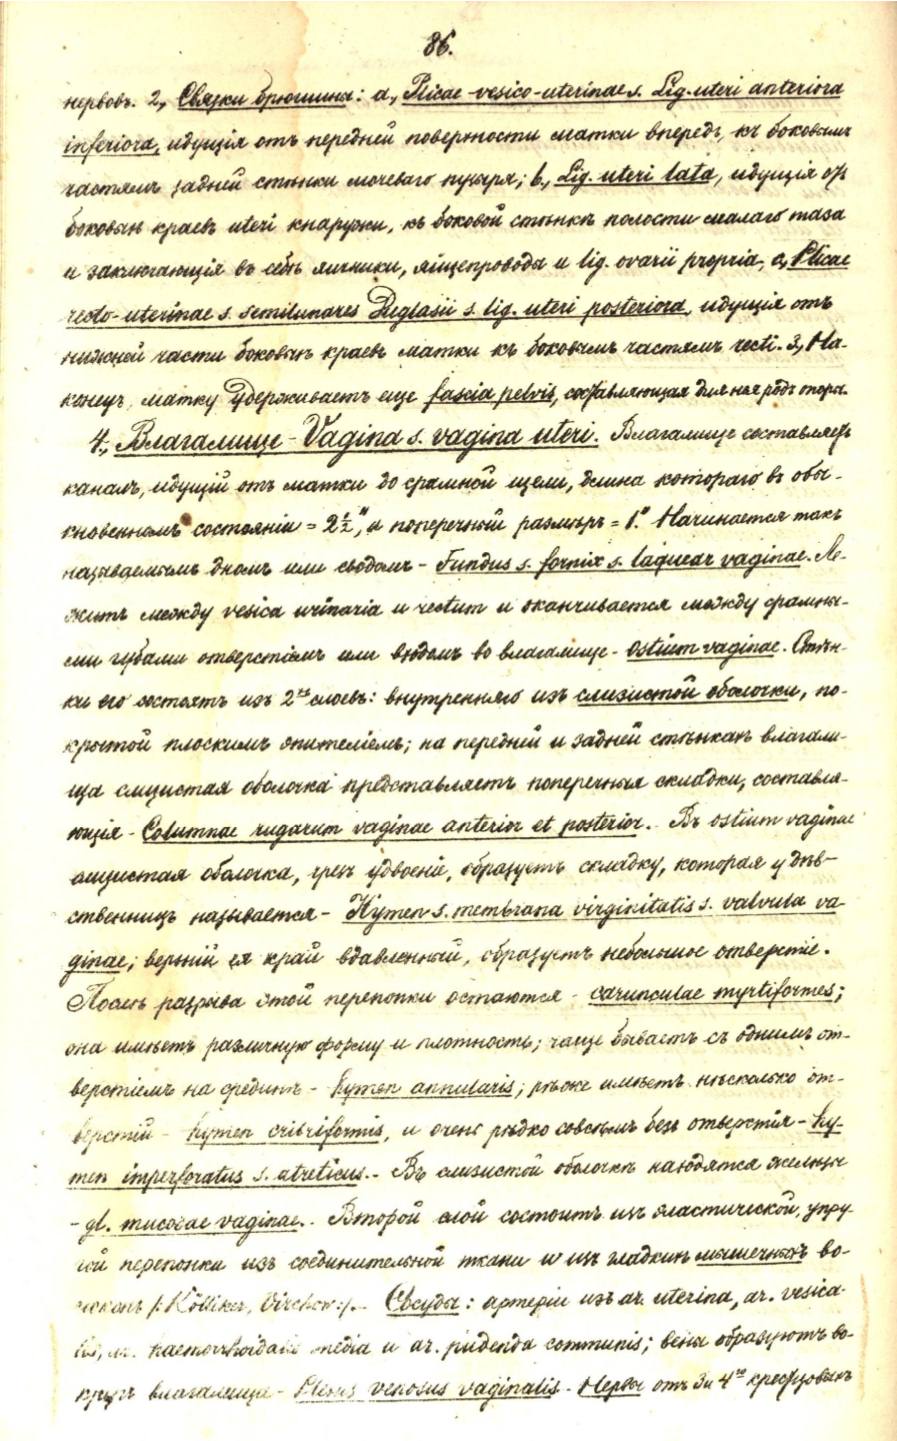 86.
нервовъ. 2, Связки брюшины: a, Plicae vesico-uterinae s. Lig. uteri anteriora
inferiora, идущія отъ передней поверхности матки впередъ, къ боковымъ
частямъ задней стѣнки мочеваго пузыря; b, Lig. uteri lata, идущія отъ
боковыхъ краевъ uteri кнаружи, къ боковой стѣнкѣ полости малаго таза
и заключающія въ себѣ яичники, яйцепровода и lig. ovarii propria, c, Plicae
recto-uterinae s. semilunares Duglasii s. lig. uteri posteriora, идущія отъ
нижней части боковыхъ краевъ матки къ боковымъ частямъ recti. 3, На-
конецъ, матку удерживаетъ еще fascia pelvis, составляющая для нея родъ опоры.
4., Влагалище - Vagina s. vagina uteri. Влагалище составляетъ
каналъ, идущій отъ матки до срамной щели, длина котораго въ обы-
кновенномъ состояніи = 2½", и поперечный размѣръ = 1." Начинается такъ
называемымъ дномъ или сводомъ - Fundus s. fornix s. laquear vaginae. Ле-
житъ между vesica urinaria и rectum и оканчивается между срамны-
ми губами отверстіемъ или входомъ во влагалище - Ostium vaginae. Стѣн-
ки его состоятъ изъ 2хъ слоевъ: внутренняго изъ слизистой оболочки, по-
крытой плоскимъ эпителіемъ; на передней и задней стѣнкахъ влагали-
ща слизистая оболочка представляетъ поперечныя складки, составля-
ющія - Columnae rugarum vaginae anterior et posterior. Въ ostium vaginae
слизистая оболочка, чрезъ удвоеніе, образуетъ складку, которая у дѣв-
ственницъ называется - Hymen s. membrana virginitatis s. valvula va-
ginae; верхній ея край вдавленный, образуетъ небольшое отверстіе.
Послѣ разрыва этой перепонки остаются - carunculae myrtiformes;
она имѣетъ различную форму и плотность; чаще бываетъ съ однимъ от-
верстіемъ на срединѣ - hymen annularis; рѣже имѣетъ нѣсколько от-
верстій - hymen cribriformis, и очень рѣдко совсѣмъ безъ отверстія - hy-
men imperforatus s. atreticus. - Въ слизистой оболочкѣ находятся железы
- gl. mucosae vaginae. - Второй слой состоитъ изъ эластической, упру-
гой перепонки изъ соединительной ткани и изъ гладкихъ мышечныхъ во-
локонъ /: Kölliker, Virchow :/. - Сосуды: артеріи изъ ar. uterina, ar. vesica-
lis, ar. haemorrhoidalis media и ar. pudenda communis; вены образуютъ во-
кругъ влагалища - Plexus venosus vaginalis. - Нервы отъ 3 и 4го крестцовыхъ